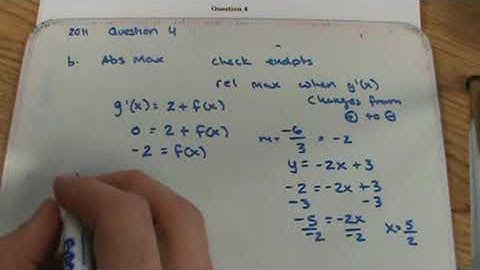 Question 4
2011 Question 4
b. Abs Max check endpts
rel max when g'(x)
changes from
⊕ to ⊖
g'(x) = 2 + f(x)
0 = 2 + f(x)
-2 = f(x)
m = -6/3 = -2
y = -2x + 3
-2 = -2x + 3
-3 -3
-5/-2 = -2x/-2 x = 5/2